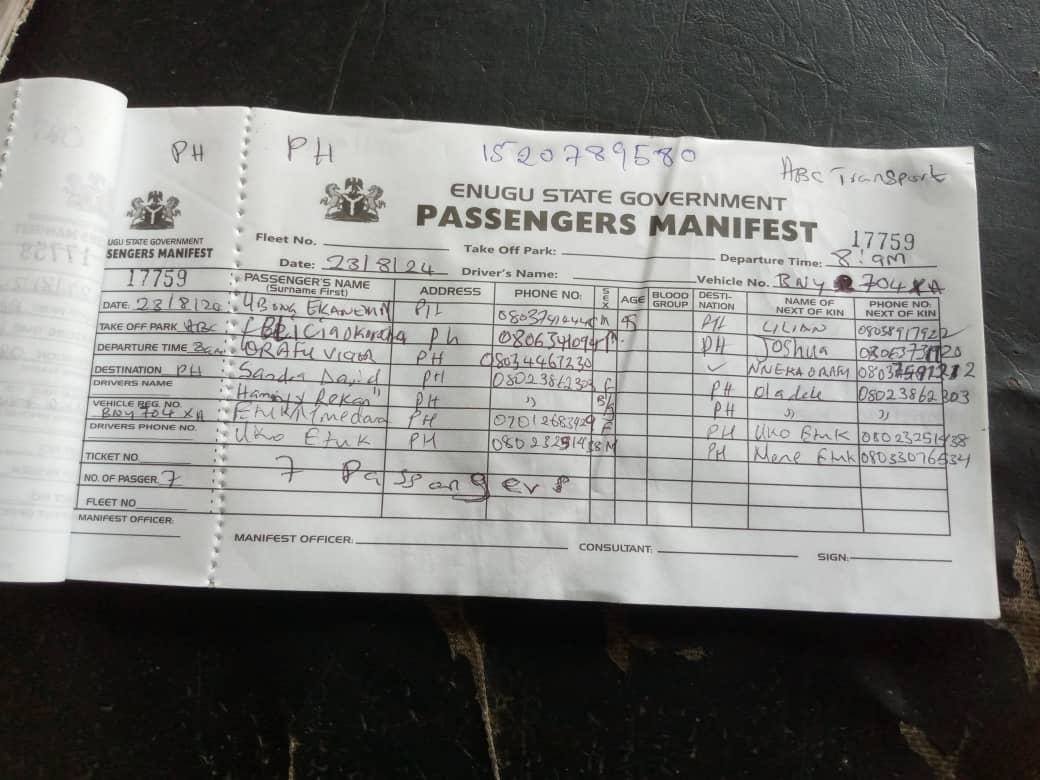 PH PH 1520789580 ABC Transport
ENUGU STATE GOVERNMENT
PASSENGERS MANIFEST
17759
Fleet No. Take Off Park: Departure Time: 8:am
Date: 23/8/24 Driver's Name: Vehicle No. BNY 704 XA
PASSENGER'S NAME (Surname First) ADDRESS PHONE NO: SEX AGE BLOOD GROUP DESTINATION NAME OF NEXT OF KIN PHONE NO: NEXT OF KIN
UBONG EKANEM PH M PH LILIAN
PH PH Joshua
ORAFU Victor PH 08034467230 ✓ NNEKA ORAFU
Sandra David PH 08023862303 F PH Oladele 08023862303
PH " PH "
PH F PH Uko Etuk 08023251438
Uko Etuk PH M PH Mene Etuk 08033076534
7 Passangers
MANIFEST OFFICER: CONSULTANT: SIGN:
UGU STATE GOVERNMENT
SENGERS MANIFEST
17759
DATE: 23/8/24
TAKE OFF PARK ABC
DEPARTURE TIME 8am
DESTINATION PH
DRIVERS NAME
VEHICLE REG. NO.
BNY 704 XA
DRIVERS PHONE NO.
TICKET NO.
NO. OF PASGER. 7
FLEET NO
MANIFEST OFFICER: